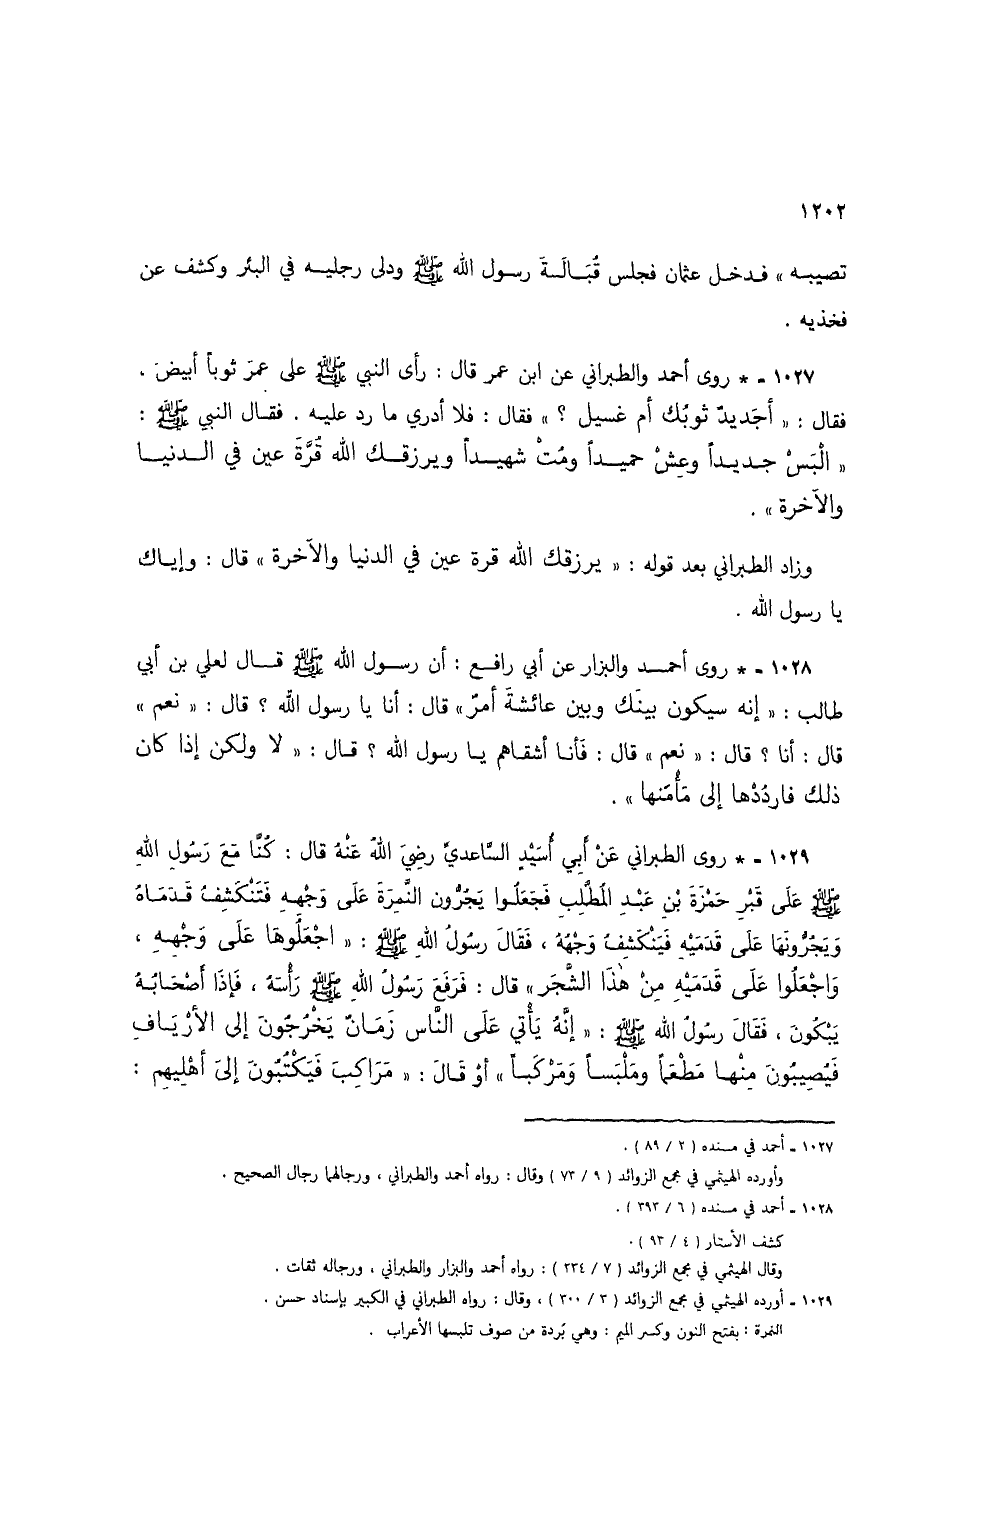 ١٢٠٢
تصيبه » فدخل عثمان فجلس قُبَالَةَ رسول الله ﷺ ودلى رجليه في البئر وكشف عن
فخذيه .
١٠٢٧ - * روى أحمد والطبراني عن ابن عمر قال : رأى النبي ﷺ على عمرَ ثوباً أبيضَ .
فقال : « أجَديدٌ ثوبُك أم غسيل ؟ » فقال : فلا أدري ما رد عليه . فقال النبي ﷺ :
« الْبَسْ جديداً وعِشْ حميداً ومُتْ شهيداً ويرزقك الله قُرَّةَ عين في الدنيا
والآخرة » .
وزاد الطبراني بعد قوله : « يرزقك الله قرة عين في الدنيا والآخرة » قال : وإياك
يا رسول الله .
١٠٢٨ - * روى أحمد والبزار عن أبي رافع : أن رسول الله ﷺ قال لعلي بن أبي
طالب : « إنه سيكون بينَك وبين عائشةَ أمرٌ » قال : أنا يا رسول الله ؟ قال : « نعم »
قال : أنا ؟ قال : « نعم » قال : فَأنا أشقاهم يا رسول الله ؟ قال : « لا ولكن إذا كان
ذلك فاردُدْها إلى مَأْمَنها » .
١٠٢٩ - * روى الطبراني عَنْ أَبِي أُسَيْدٍ السَّاعديِّ رضِيَ اللهُ عَنْهُ قال : كُنَّا مَعَ رَسُولِ اللهِ
ﷺ عَلَى قَبْرِ حَمْزَةَ بْنِ عَبْدِ المُطَّلِبِ فَجَعَلُوا يَجُرُّون النَّمِرَةَ عَلَى وَجْهِهِ فَتَنْكَشِفُ قَدَمَاهُ
وَيَجُرُّونَهَا عَلَى قَدَمَيْهِ فَيَنْكَشِفُ وَجْهُهُ ، فَقَالَ رسُولُ اللهِ ﷺ : « اجْعَلُوهَا عَلَى وَجْهِهِ ،
وَاجْعَلُوا عَلَى قَدَمَيْهِ مِنْ هٰذَا الشَّجَر » قال : فَرَفَعَ رَسُولُ اللهِ ﷺ رَأْسَهُ ، فَإذَا أَصْحَابُهُ
يَبْكُونَ ، فَقَالَ رسُولُ الله ﷺ : « إنَّهُ يَأْتي عَلَى النَّاس زَمَانٌ يَخْرُجُونَ إلى الأرْيَافِ
فَيُصِيبُونَ مِنْها مَطْعَماً ومَلْبَساً وَمَرْكَباً » أوْ قَالَ : « مَرَاكِبَ فَيَكْتُبُونَ إلىَ أَهْلِيهِم :
١٠٢٧ - أحمد في مسنده ( ٢ / ٨٩ ) .
وأورده الهيثمي في مجمع الزوائد ( ٩ / ٧٣ ) وقال : رواه أحمد والطبراني ، ورجالهما رجال الصحيح .
١٠٢٨ - أحمد في مسنده ( ٦ / ٣٩٣ ) .
كشف الأستار ( ٤ / ٩٣ ) .
وقال الهيثمي في مجمع الزوائد ( ٧ / ٢٣٤ ) : رواه أحمد والبزار والطبراني ، ورجاله ثقات .
١٠٢٩ - أورده الهيثمي في مجمع الزوائد ( ٣ / ٣٠٠ ) ، وقال : رواه الطبراني في الكبير بإسناد حسن .
النمرة : بفتح النون وكسر الميم : وهي بُردة من صوف تلبسها الأعراب .